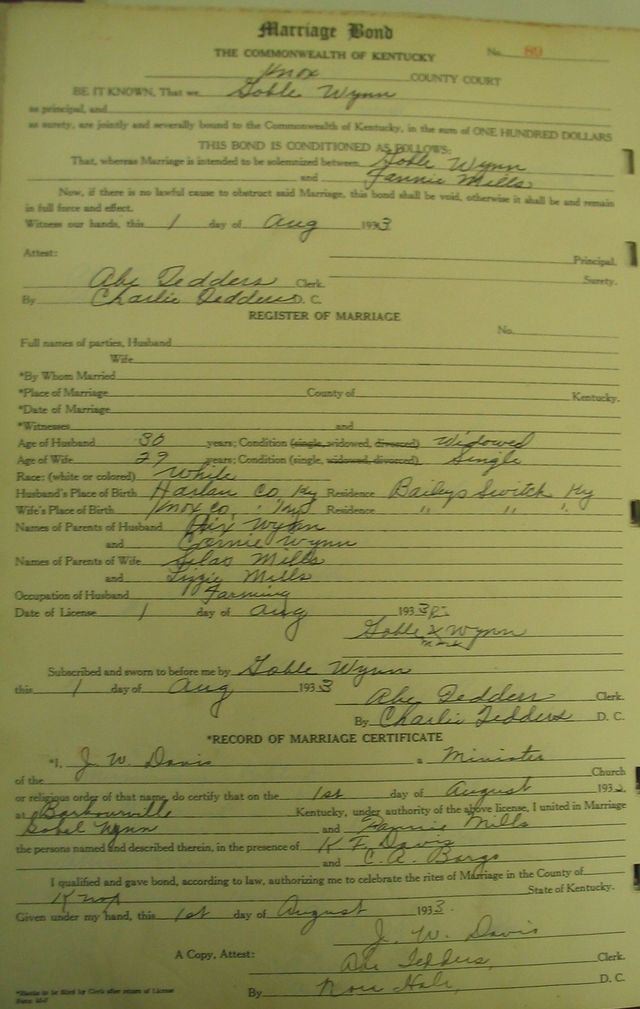 Marriage Bond
THE COMMONWEALTH OF KENTUCKY No. 89
Knox COUNTY COURT
BE IT KNOWN, That we Goble Wynn
as principal, and
as surety, are jointly and severally bound to the Commonwealth of Kentucky, in the sum of ONE HUNDRED DOLLARS
THIS BOND IS CONDITIONED AS FOLLOWS:
That, whereas Marriage is intended to be solemnized between Goble Wynn
and Fannie Mills
Now, if there is no lawful cause to obstruct said Marriage, this bond shall be void, otherwise it shall be and remain
in full force and effect.
Witness our hands, this 1 day of Aug 1933
Attest: Principal.
Abe Tedders Clerk. Surety.
By Charlie Tedders D. C.
REGISTER OF MARRIAGE
No.
Full names of parties, Husband
Wife
*By Whom Married
*Place of Marriage County of Kentucky.
*Date of Marriage
*Witnesses and
Age of Husband 30 years; Condition (single, widowed, divorced) Widowed
Age of Wife 29 years; Condition (single, widowed, divorced) Single
Race: (white or colored) White
Husband's Place of Birth Harlan Co, Ky Residence Baileys Switch Ky
Wife's Place of Birth Knox Co, Residence " " "
Names of Parents of Husband Wynn
and Wynn
Names of Parents of Wife Silas Mills
and Lizzie Mills
Occupation of Husband Farming
Date of License 1 day of Aug 1933
Goble x Wynn
mark
Subscribed and sworn to before me by Goble Wynn
this 1 day of Aug 1933
Abe Tedders Clerk.
By Charlie Tedders D. C.
*RECORD OF MARRIAGE CERTIFICATE
*I, J. W. Davis a Minister
of the Church
or religious order of that name, do certify that on the 1st day of August 193
at Barbourville Kentucky, under authority of the above license, I united in Marriage
Gobel Wynn and Fannie Mills
the persons named and described therein, in the presence of K. F. Davis
and C. A.
I qualified and gave bond, according to law, authorizing me to celebrate the rites of Marriage in the County of
Knox State of Kentucky.
Given under my hand, this 1st day of August 1933.
J. W. Davis
A Copy, Attest: Abe Tedders, Clerk.
By Hale, D. C.
*Blanks to be filled by Clerk after return of License